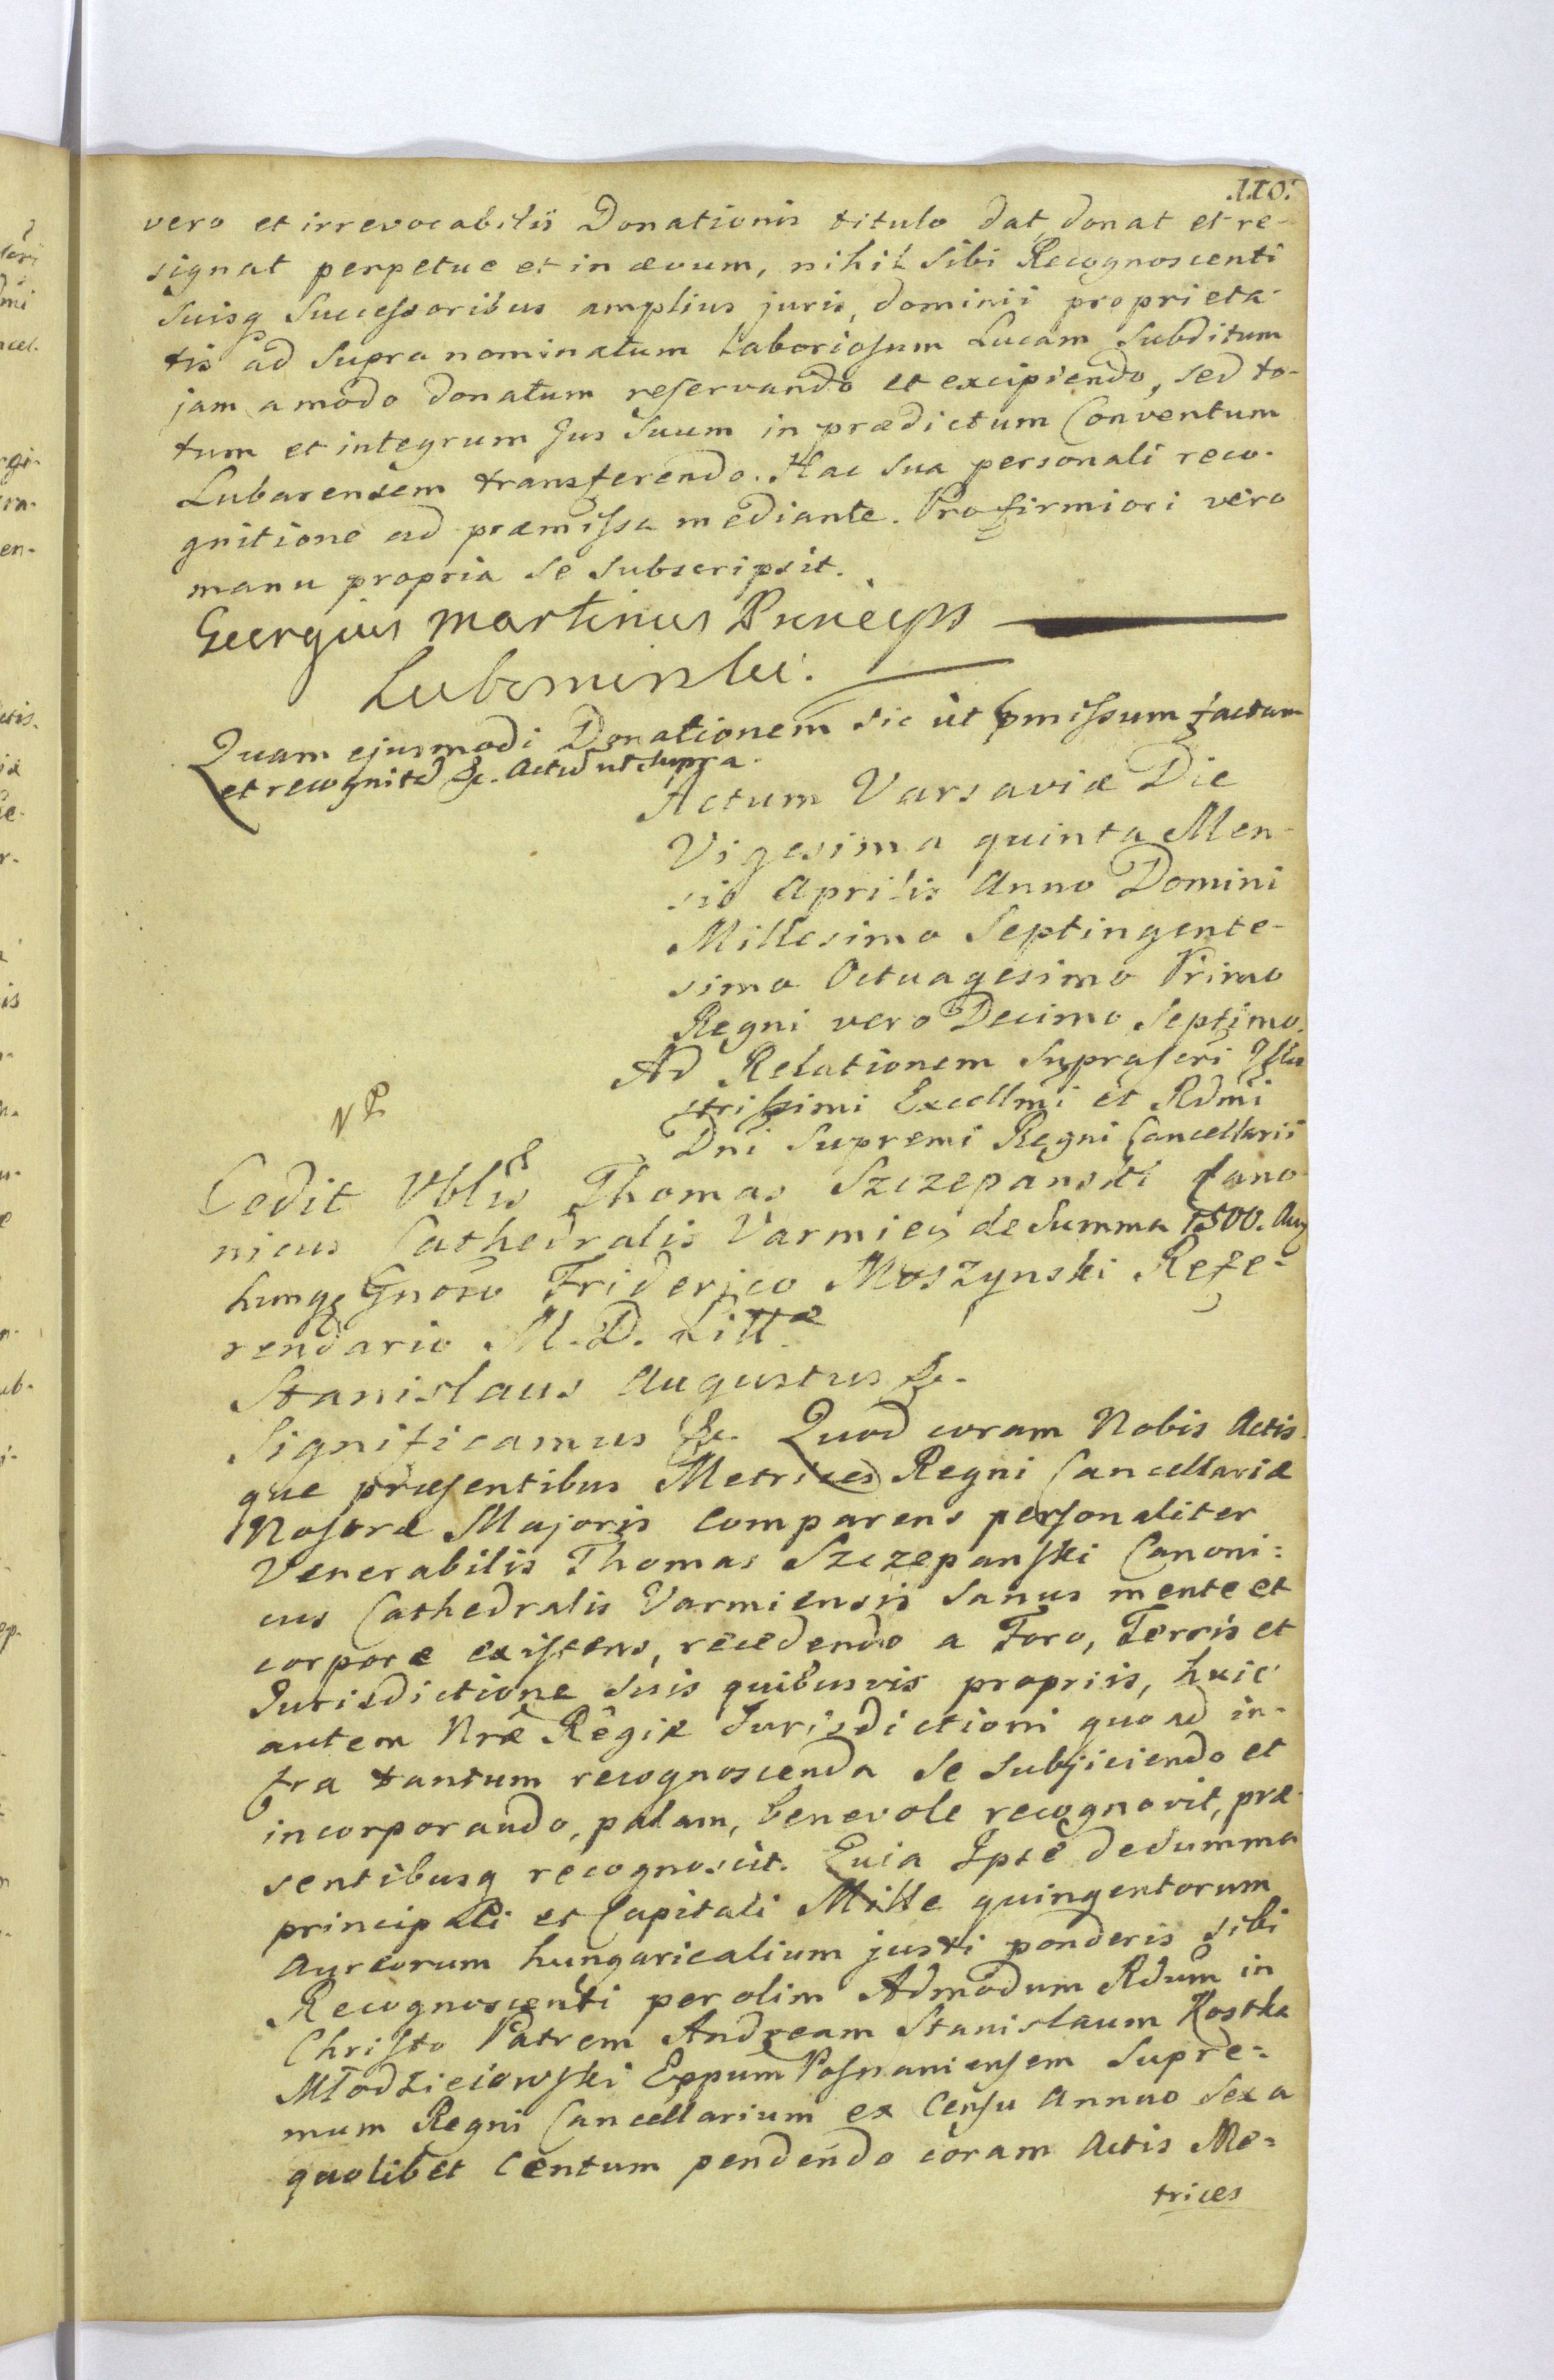 110.
vero et irrevocabilis Donationis titulo dat, donat et re-
signat perpetue et in ævum, nihil Sibi Recognoscenti
Suisq Successoribus amplius juris, dominii proprieta-
tis ad Supra nominatum Laboriosum Lucam Subditum
jam amodo donatum reservando et excipiendo, sed to-
tum et integrum Jus Suum in prædictum Conventum
Lubarensem transferendo. Hac Sua personali reco-
gnitione ad præmissa mediante. Pro firmiori vero
manu propria Se Subscripsit.
Georgius Martinus Princeps
Lubomirski.
Quam ejusmodi Donationem sic ut pmissum factam
et recognitã &c. Actũ ut Supra.
Actum Varsaviæ Die
Vigesima quinta Men-
sis Aprilis Anno Domini
Millesimo Septingente-
simo Octuagesimo Primo
Regni vero Decimo Septimo.
Ad Relationem Suprascri Illu
strissimi Excellmi et Rdmi
Dni Supremi Regni Cancellarii
Cedit Vblis Thomas Szczepanski Cano
nicus Cathedralis Varmien de Summa 1500. Aur
hung Gnoso Friderico Moszynski Refe-
rendario M. D. Littæ
Stanislaus Augustus &c.
Significamus &c. Quod coram Nobis Actis
que præsentibus Metrices Regni Cancellariæ
Nostræ Majoris comparens personaliter
Venerabilis Thomas Szczepanski Canoni:
cus Cathedralis Varmiensis Sanus mente et
corpore existens, recedendo a Foro, Terris et
Jurisdictione Suis quibusvis propriis, huic
autem Nræ Regiæ Jurisdictioni quo ad in-
fra tantum recognoscenda Se Subjiciendo et
incorporando, palam, benevole recognovit, præ-
sentibusq recognoscit. Quia Ipse de Summa
principali et Capitali Mille quingentorum
Aureorum hungaricalium justi ponderis sibi
Recognoscenti per olim Admodum Rdum in
Christo Patrem Andream Stanislaum Kostka
Młodzieiowski Eppum Posnaniensem Supre=
mum Regni Cancellarium ex Censu Annuo Sex a
quolibet Centum pendendo coram Actis Me=
trices